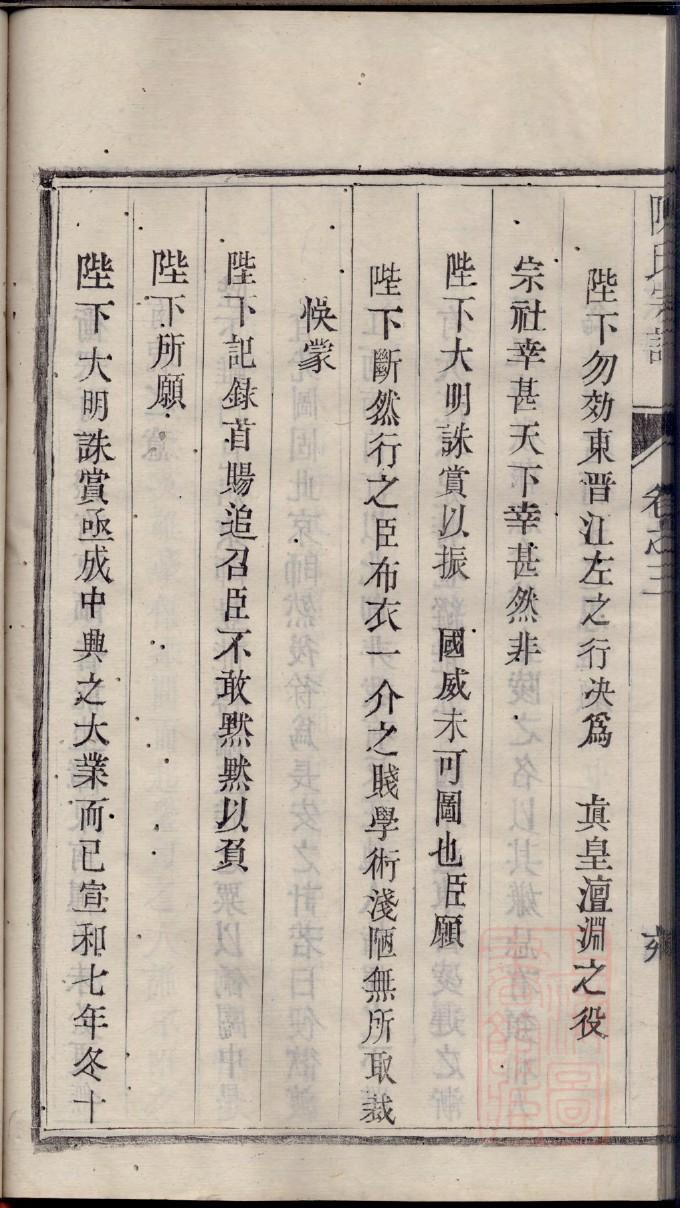 陳氏宗譜
卷之三
陛下勿効東晋江左之行决爲 真皇澶淵之役
宗社幸甚天下幸甚然非
陛下大明誅賞以振 國威未可圖也臣願
陛下斷然行之臣布衣一介之賤學術淺陋無所取裁
悞蒙
陛下記録首賜追召臣不敢黙黙以負
陛下所願
陛下大明誅賞亟成中興之大業而已宣和七年冬十